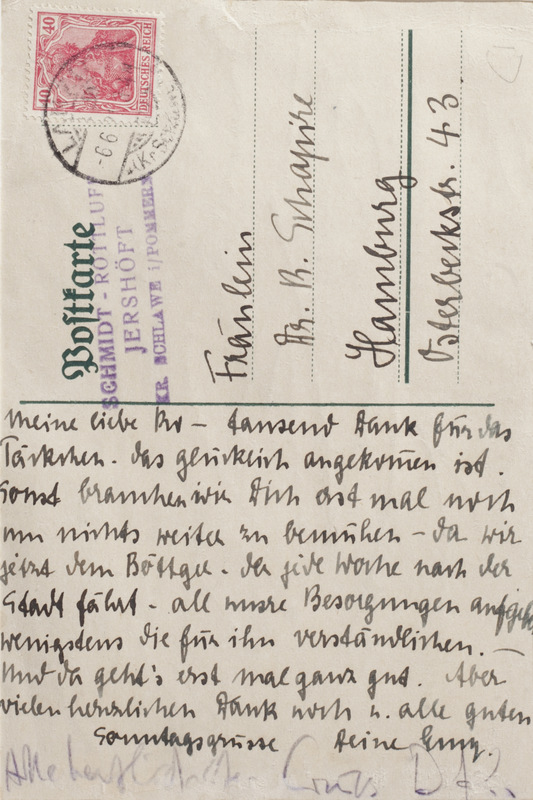 40 40
DEUTSCHES REICH
-6.6
Postkarte
SCHMIDT-ROTTLUFF
JERSHÖFT
KR. SCHLAWE i/POMMERN
Fräulein
Dr. R. Schapire
Hamburg
Osterbeckstr. 43
Meine liebe Ro – tausend Dank für das
Täschchen - das glücklich angekommen ist.
Sonst brauchen wir Dich erst mal noch
um nichts weiter zu bemühen – da wir
jetzt dem Böttger - der jede Woche nach der
Stadt fährt - all unsre Besorgungen
wenigstens die für ihn verständlichen. –
Und da geht's erst mal ganz gut. Aber
vielen herzlichen Dank noch u. alle guten
Sonntagsgrüsse Deine Emy.